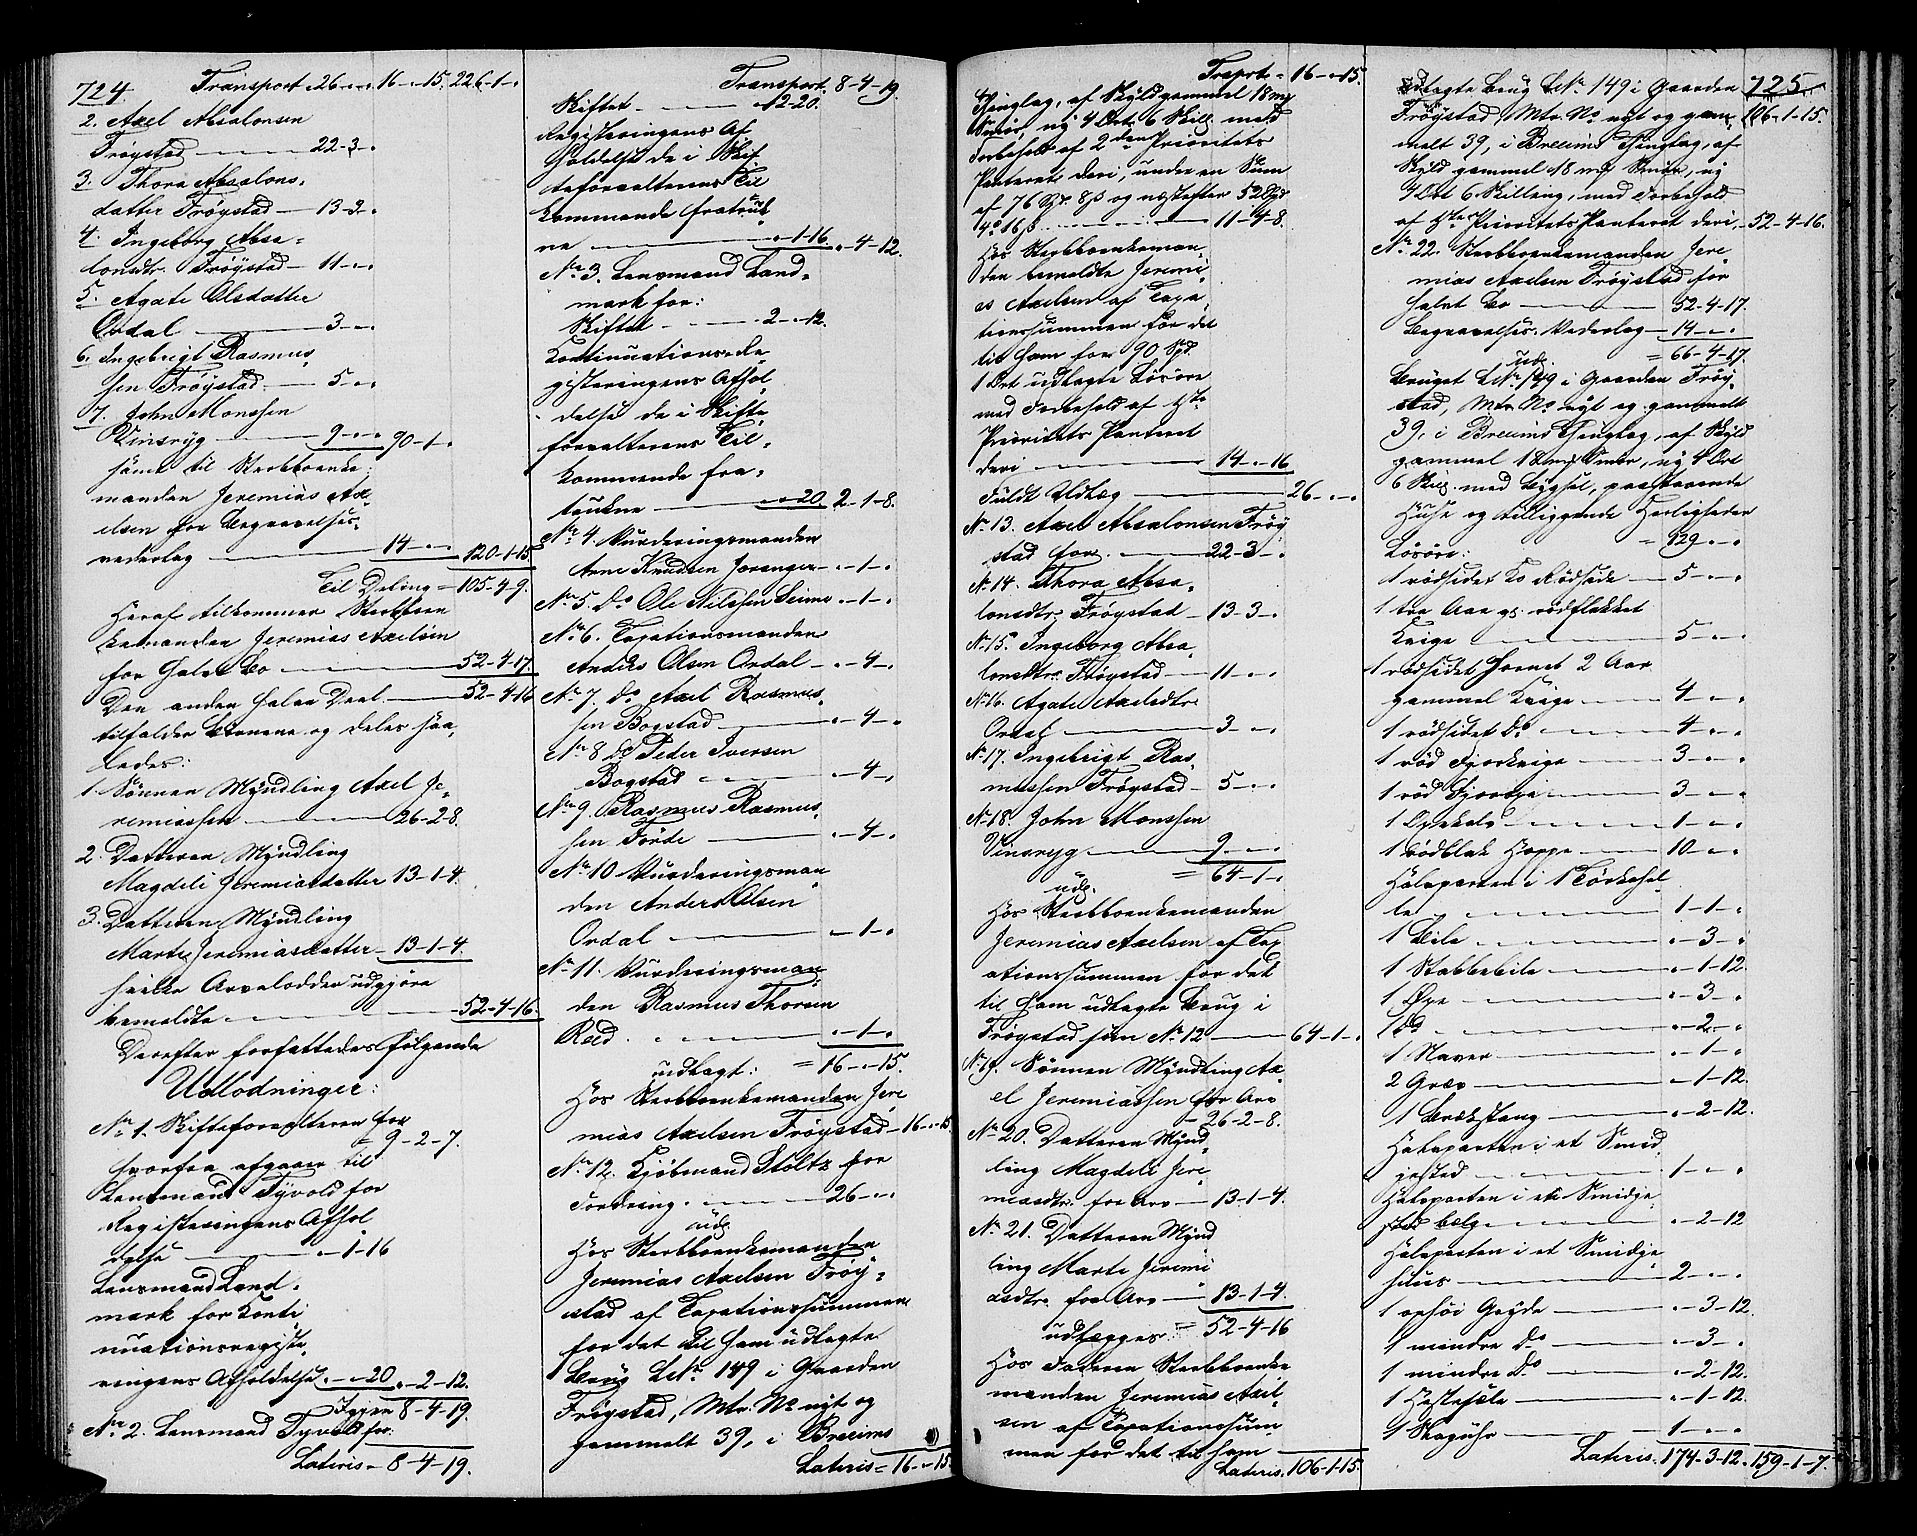 724. Transport. 26-"-" 16-"-15. 226-1-"
2. Axel Absalonsen
Frøystad — 22-3-"
3. Thora Absalons-
datter Frøystad — 13-3-"
4. Ingeborg Absa-
lonsdtr. Frøystad — 11-"-"
5. Agate Olsdatter
Ordal — 3-"-"
6. Ingebrigt Rasmus-
sen Frøystad — 5-"-"
7. John Monssen
Vinsryg — 9-"-" 90-1-"
samt til Sterbboenke-
manden Jeremias Ax-
elsen for Begravelses-
vederlag — 14-"-" 120-1-15.
Til Deling = 105-4-9.
Heraf tilkommer Sterbboen-
kemanden Jeremias Axelsen
for halve Bo — 52-4-17.
Den anden halve Deel — 52-4-16
tilfalder Børnene og deles saa-
ledes:
1. Sønnen Myndling Axel Je-
remiassen — 26-2-8.
2. Datteren Myndling
Magdeli Jeremiasdatter 13-1-4.
3. Datteren Myndling
Marte Jeremiasdatter — 13-1-4.
hvilke Arvelodder udgjøre
bemeldte — 52-4-16.
Derefter forfattedes følgende
Udlodninger:
No 1. Skifteforvalteren for
= 9-2-7.
hvorfra afgaaer til
Lensmand Tyvold for
Registeringens Afhol-
delse — "-1-16
Lensmand Land-
mark for Konti-
nuationsregiste-
ringens Afholdelse "-"-20 "-2-12.
Igjen 8-4-19.
No 2. Lensmand Tyvold for:
Lateris = 8-4-19.
Transport. 8-4-19.
Skiftet — "-2-20.
Registeringens Af-
holdelse de i Skif-
teforvalterens Til-
kommende fratruk-
ne — "-1-16 "-4-12.
No 3. Lensmand Land-
mark for:
Skiftet — 2-"-12.
Kontinuations-Re-
gisteringens Afhol-
delse de i Skifte-
forvalterens Til-
kommende fra-
trukne — "-"-20 2-1-8.
No 4. Vurderingsmanden
Arne Knudsen Joranger "-1-"
No 5. Do Ole Nilssen Seime "-1-"
No 6. Taxationsmanden
Anders Olsen Ordal — "-4-"
No 7. Do Axel Rasmus-
sen Bogstad — "-4-"
No 8 Do Peder Iversen
Bogstad — "-4-"
No 9. Rasmus Rasmus-
sen Førde — "-4-"
No 10 Vurderingsman-
den Anders Olsen
Ordal — "-1-"
No 11. Vurderingsman-
den Rasmus Thoresen
Røed — "-1-"
udlagt: = 16-"-15.
Hos Sterbboenkemanden Jere-
mias Axelsen Frøystad — 16-"-15.
No 12. Kjøbmand Stoltz for
Fordring — 26-"-"
udl.
Hos Sterbboenkemanden
Jeremias Axelsen Frøy-
stad af Taxationssummen
for det til ham udlagte
Brug L.No 149 i Gaarden
Frøystad, Mtr. No nyt og
gammelt 39, i Breims
Lateris = 16-"-15
Trsprt = 16-"-15.
Thinglag, af Skyld gammel 18 mrk
Smør, ny 4 Ort 6 Skill. med
Forbehold af 2den Prioritets
Panteret deri, under en Sum
af 76 Spd. 8 ß og næstefter 52 Spd
4 o 16 ß — 11-4-8.
Hos Sterbboenkeman-
den bemeldte Jeremi-
as Axelsen af Taxa-
tionssummen for det
til ham for 90 Spd.
1 Ort udlagte Løsøre
med Forbehold af 1ste
Prioritets Panteret
deri — 14-"-16
Fuldt Udlæg — 26-"-"
No 13. Axel Absalonsen Frøy-
stad for — 22-3-"
No 14. Thora Absa-
lonsdtr. Frøystad — 13-3-"
No 15. Ingeborg Absa-
lonsdtr. Frøystad — 11-"-"
No 16. Agate Axelsdtr.
Ordal — 3-"-"
No 17. Ingebrigt Ras-
mussen Frøystad — 5-"-"
No 18. John Monssen
Vinsryg — 9-"-"
= 64-1-"
udl.
Hos Sterbboenkemanden
Jeremias Axelsen af Tax-
ationssummen for det
til ham udlagte Brug i
Frøystad som No 12 — 64-1-"
No 19. Sønnen Myndling Ax-
el Jeremiassen for Arv
- 26-2-8.
No 20. Datteren Mynd-
ling Magdeli Jere-
miasdtr. for Arv — 13-1-4.
No 21. Datteren Mynd-
ling Marte Jeremi-
asdtr. for Arv — 13-1-4.
udlægges = 52-4-16
Hos Faderen Sterbboenke-
manden Jeremias Axel-
sen af Taxationssum-
men for det til ham
Lateris. 106-1-15.
udlagte Brug L.No 149 i Gaarden 725
Frøystad, Mtr. No nyt og gam- 106-1-15.
melt 39, i Breims Thinglag, af
Skyld gammel 18 mrk Smør, ny
4 Ort 6 Skilling, med Forbehold
af 1ste Prioritets Panteret deri, 52-4-16.
No 22. Sterbboenkemanden Jere-
mias Axelsen Frøystad for
halvt Bo — 52-4-17.
Begravelses-Vederlag — 14-"-"
udl. = 66-4-17.
Bruget L.No 149 i Gaarden Frøy-
stad, Mtr. No nyt og gammelt
39, i Breims Thinglag, af Skyld
gammel 18 mrk Smør, ny 4 Ort
6 Skill. med Bygsel, paastaaende
Huse og tilliggende Herligheder
= 129-"-"
Løsøre:
1 rødsidet Ko Rødside — 5-"-"
1 tre Aar gl. rødflekket
Kvige — 5-"-"
1 rødsidet hornet 2 Aar
gammel Kvige — 4-"-"
1 rødsidet Do — 4-"-"
1 rød Fjorkvige — 3-"-"
1 rød Do — 3-"-"
1 — 1-"-"
1 rødblak Hoppe — 10-"-"
Halvparten i 1 Tørkehel-
le — 1-1-"
1 Bile — "-3-"
1 Stabbebile — "-1-12
1 Øxe — "-3-"
1 do — "-2-"
1 Naver — "-1-"
2 Grev — "-1-12.
1 Brækstang — "-2-12.
Halvparten i et Smid-
jested — 1-"-"
Halvparten i en Smidje-
bælg — "-2-12
Halvparten i et Smidje-
huus — 2-"-"
1 Gryde — "-3-12.
1 mindre Do — "-3-"
1 mindre Do — "-2-12.
1 Hestesele — "-1-12.
1 Stoguhr — 1-"-"
Lateris. 174-3-12. 159-1-7.